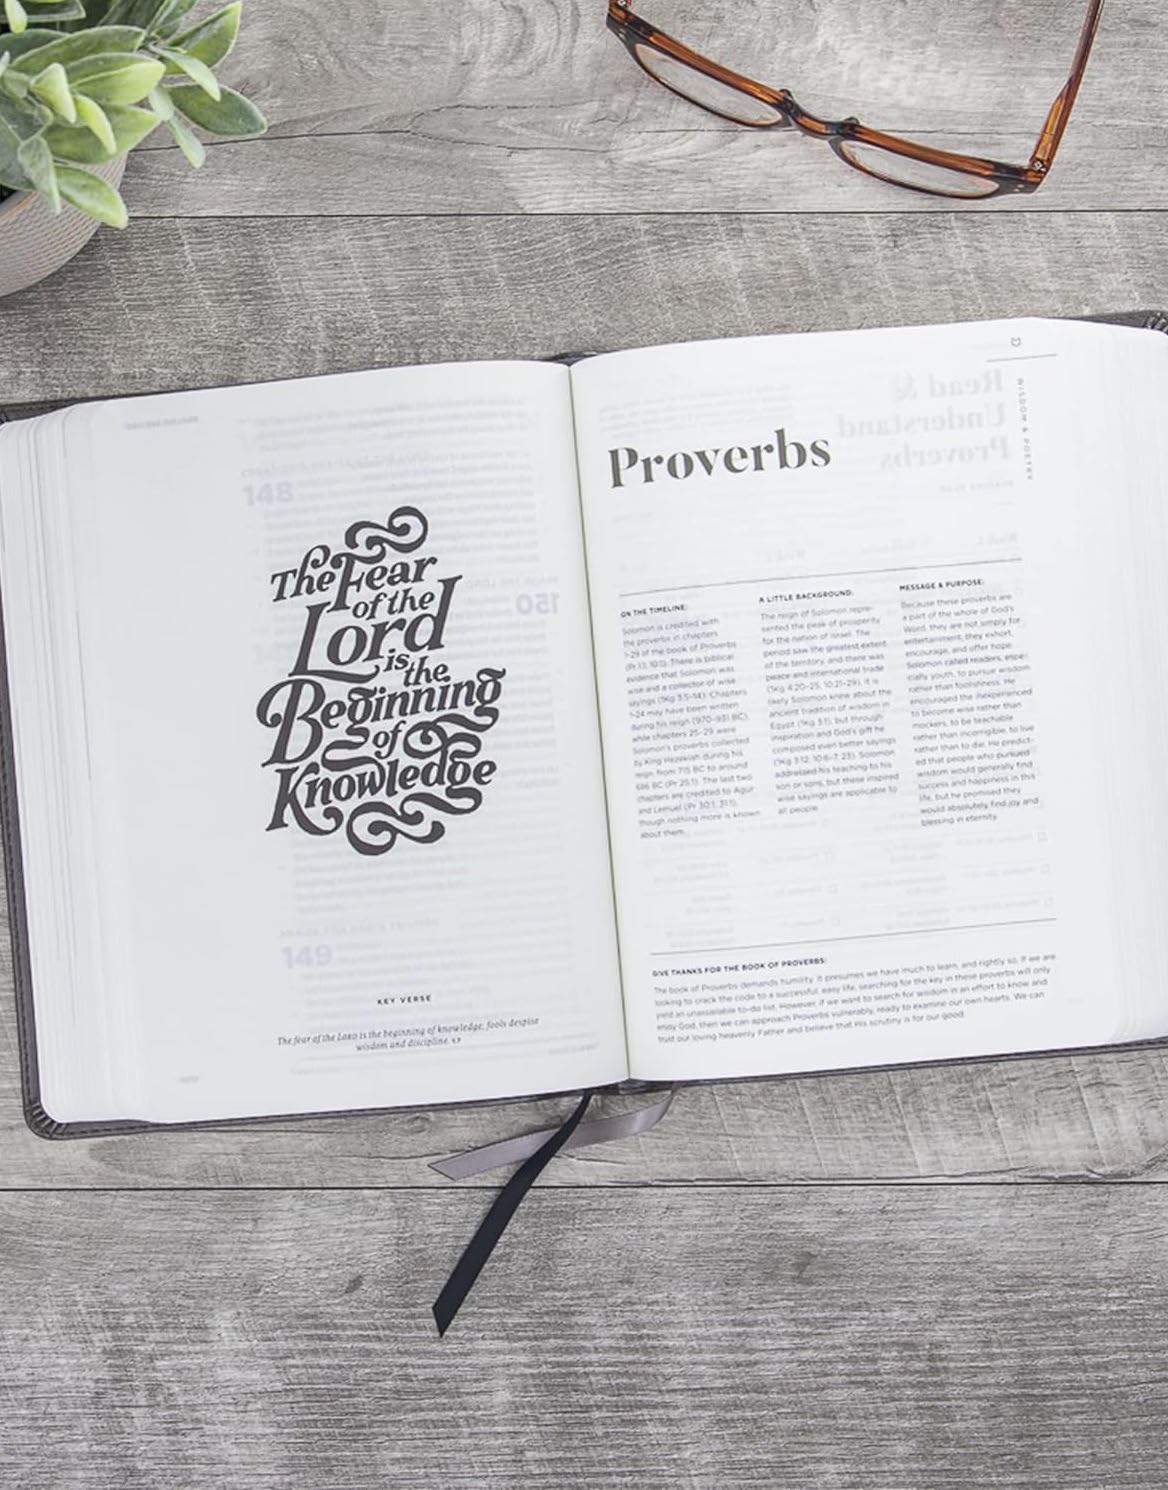 The Fear
of the
Lord
is the
Beginning
of
Knowledge
KEY VERSE
The fear of the LORD is the beginning of knowledge; fools despise
wisdom and discipline. 1:7
148
150
149
WISDOM & POETRY
Proverbs
Read &
Understand
Proverbs
ON THE TIMELINE:
Solomon is credited with
the proverbs in chapters
1-29 of the book of Proverbs
(Pr 1:1; 10:1). There is biblical
evidence that Solomon was
wise and a collector of wise
sayings (1Kg 3:5-14). Chapters
1-24 may have been written
during his reign (970-931 BC),
while chapters 25-29 were
Solomon's proverbs collected
by King Hezekiah during his
reign, from 715 BC to around
686 BC (Pr 25:1). The last two
chapters are credited to Agur
and Lemuel (Pr 30:1; 31:1),
though nothing more is known
about them.
A LITTLE BACKGROUND:
The reign of Solomon repre-
sented the peak of prosperity
for the nation of Israel. The
period saw the greatest extent
of the territory, and there was
peace and international trade
(1Kg 4:20-25; 10:21-29). It is
likely Solomon knew about the
ancient tradition of wisdom in
Egypt (1Kg 3:1), but through
inspiration and God's gift he
composed even better sayings
(1Kg 3:12; 10:6-7, 23). Solomon
addressed his teaching to his
son or sons, but these inspired
wise sayings are applicable to
all people.
MESSAGE & PURPOSE:
Because these proverbs are
a part of the whole of God's
Word, they are not simply for
entertainment; they exhort,
encourage, and offer hope.
Solomon called readers, espe-
cially youth, to pursue wisdom
rather than foolishness. He
encourages the inexperienced
to become wise rather than
mockers, to be teachable
rather than incorrigible, to live
rather than to die. He predict-
ed that people who pursued
wisdom would generally find
success and happiness in this
life, but he promised they
would absolutely find joy and
blessing in eternity.
GIVE THANKS FOR THE BOOK OF PROVERBS:
The book of Proverbs demands humility. It presumes we have much to learn, and rightly so. If we are
looking to crack the code to a successful, easy life, searching for the key in these proverbs will only
yield an unassailable to-do list. However, if we want to search for wisdom in an effort to know and
enjoy God, then we can approach Proverbs vulnerably, ready to examine our own hearts. We can
trust our loving heavenly Father and believe that His scrutiny is for our good.